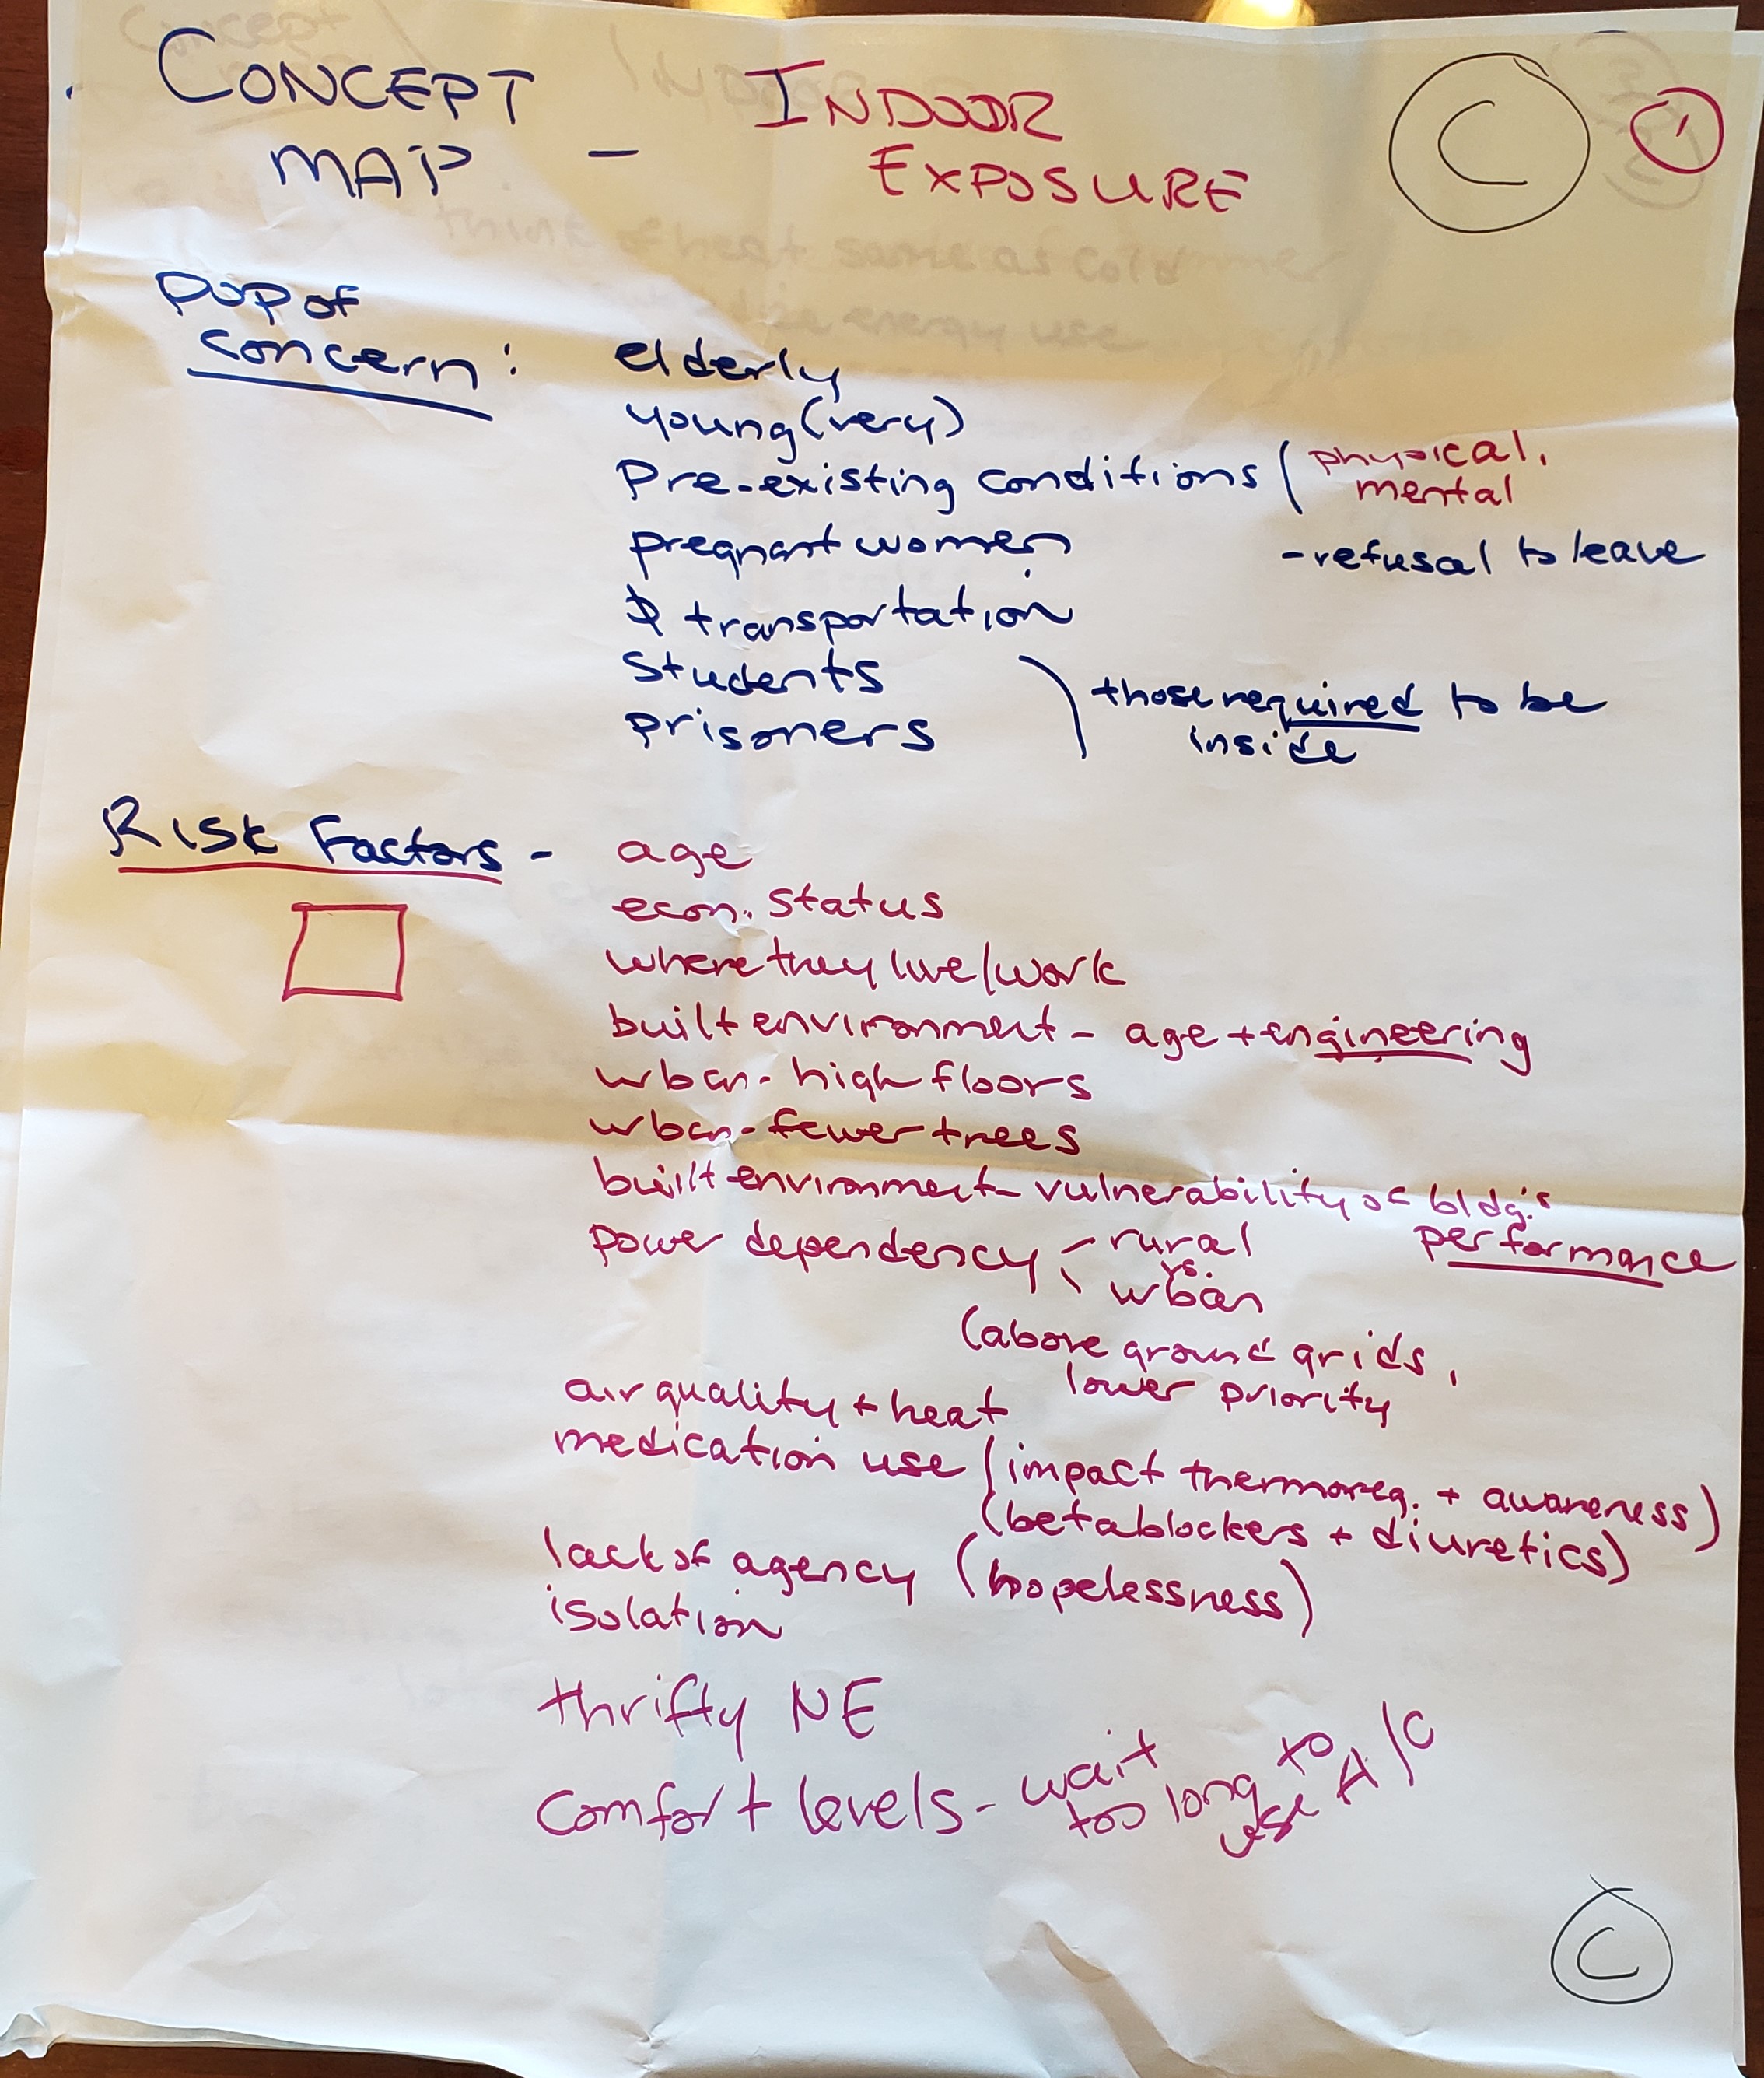 CONCEPT MAP - INDOOR EXPOSURE
C
1
pop of
concern:
elderly
young (very)
Pre-existing conditions (physical, mental
pregnant women - refusal to leave
$ transportation
Students
prisoners
) those required to be inside
Risk Factors -
age
econ. status
where they live/work
built environment - age + engineering
urban - high floors
urban - fewer trees
built environment - vulnerability of bldg.'s performance
power dependency < rural vs. urban
(above ground grids, lower priority
air quality + heat
medication use (impact thermoreg. + awareness)
(betablockers + diuretics)
lack of agency (hopelessness)
isolation
thrifty NE
Comfort levels - wait too long to use A/C
C
think of heat same as cold
energy use